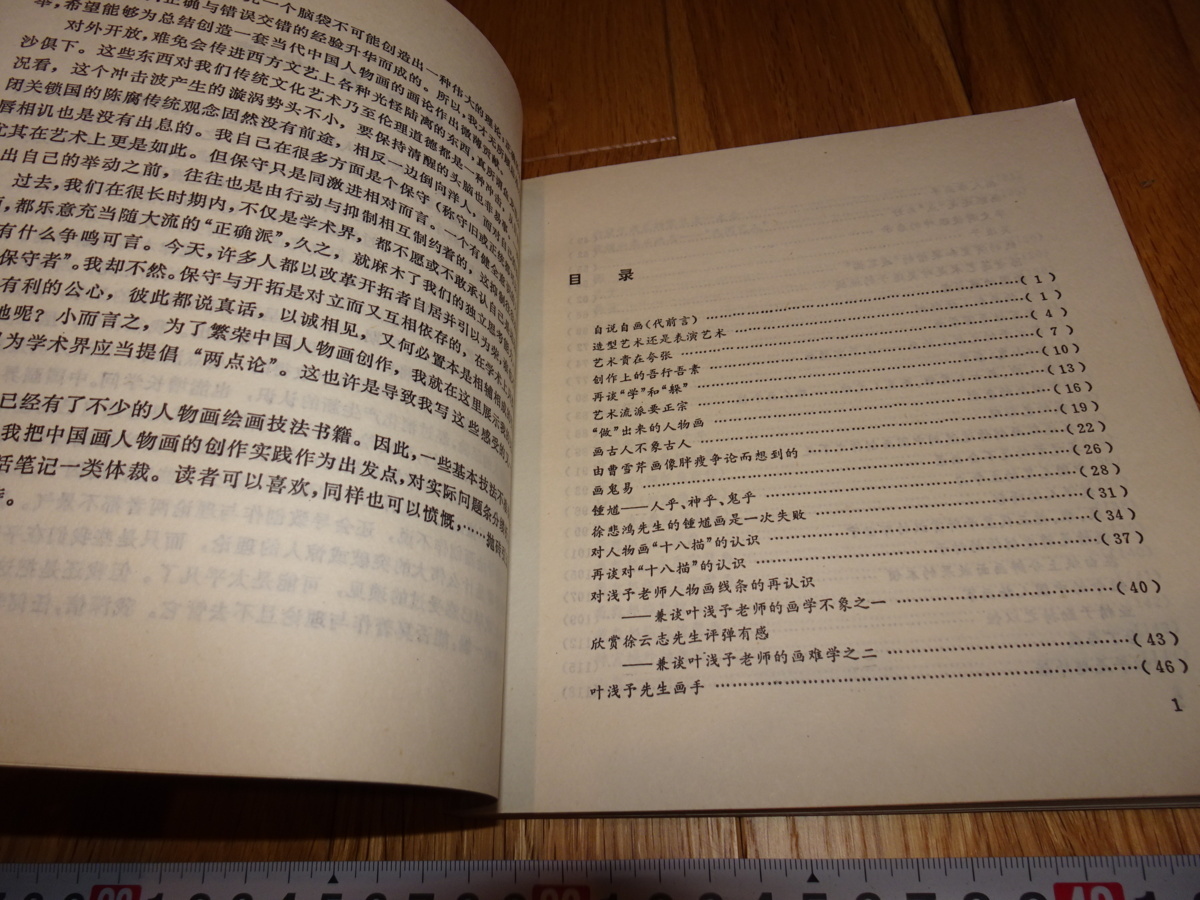 一个脑袋不可能创造出一种伟大的理论
正确与错误交错的经验升华而成的。所以，我才
希望能够为总结创造一套当代中国人物画的画论作出微薄贡献
对外开放，难免会传进西方文艺上各种光怪陆离的东西，真所谓
沙俱下。这些东西对我们传统文化艺术乃至伦理道德都是一种冲击
况看，这个冲击波产生的漩涡势头不小，要保持清醒的头脑也非易事
闭关锁国的陈腐传统观念固然没有前途，相反一边倒向洋人，而对自己
唇相讥也是没有出息的。我自己在很多方面是个保守（称守旧或正统都
尤其在艺术上更是如此。但保守只是同激进相对而言。一个有健全
出自己的举动之前，往往也是由行动与抑制相互制约着的，这抑制
过去，我们在很长时期内，不仅是学术界，都不愿或不敢承认自己是
，都乐意充当随大流的“正确派”，久之，就麻木了我们的独立思考
有什么争鸣可言。今天，许多人都以改革开拓者自居并引以为荣
保守者”。我却不然。保守与开拓是对立而又互相依存的，在学术上
有利的公心，彼此都说真话，以诚相见，又何必置本是相辅相
地呢？小而言之，为了繁荣中国人物画创作，我就在这里展示我
为学术界应当提倡“两点论”。这也许是导致我写这些感受的
已经有了不少的人物画绘画技法书籍。因此，一些基本技法不
我把中国画人物画的创作实践作为出发点，对实际问题条分缕
话笔记一类体裁。读者可以喜欢，同样也可以愤慨，……抛砖引
。
目 录
自说自画（代前言）……（1）
造型艺术还是表演艺术……（1）
艺术贵在夸张……（4）
创作上的吾行吾素……（7）
再谈“学”和“躲”……（10）
艺术流派要正宗……（13）
“做”出来的人物画……（16）
画古人不象古人……（19）
由曹雪芹画像胖瘦争论而想到的……（22）
画鬼易……（26）
锺馗——人乎、神乎、鬼乎……（28）
徐悲鸿先生的锺馗画是一次失败……（31）
对人物画“十八描”的认识……（34）
再谈对“十八描”的认识……（37）
对浅予老师人物画线条的再认识
——兼谈叶浅予老师的画学不象之一……（40）
欣赏徐云志先生评弹有感
——兼谈叶浅予老师的画难学之二……（43）
叶浅予先生画手……（46）
1